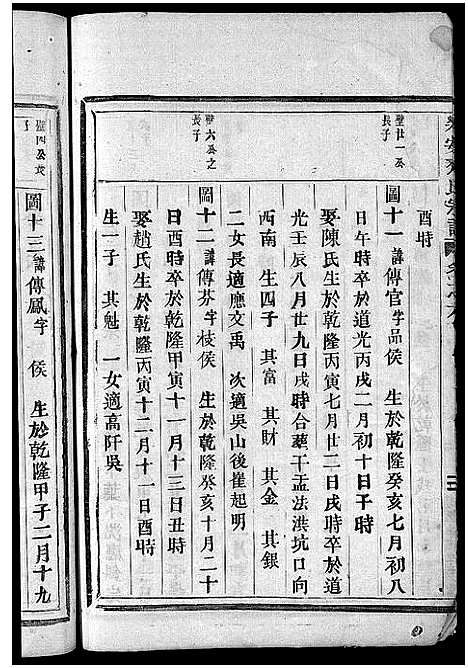 酉時
璧廿一公
長子
圖十一諱傳官字品侯 生於乾隆癸亥七月初八
日午時卒於道光丙戌二月初十日子時
娶陳氏生於乾隆丙寅七月廿二日戌時卒於道
光壬辰八月廿九日戌時合葬干盂法洪坑口向
西南 生四子 其富 其財 其金 其銀
二女長適應文禹 次適吳山後崔起明
璧六公之
長子
圖十二諱傳芬字枝侯 生於乾隆癸亥十月二十
日酉時卒於乾隆甲寅十一月十三日丑時
娶趙氏生於乾隆丙寅十二月十一日酉時
生一子 其魁 一女適高阡吳
圖十三諱傳鳳字 侯 生於乾隆甲子二月十九